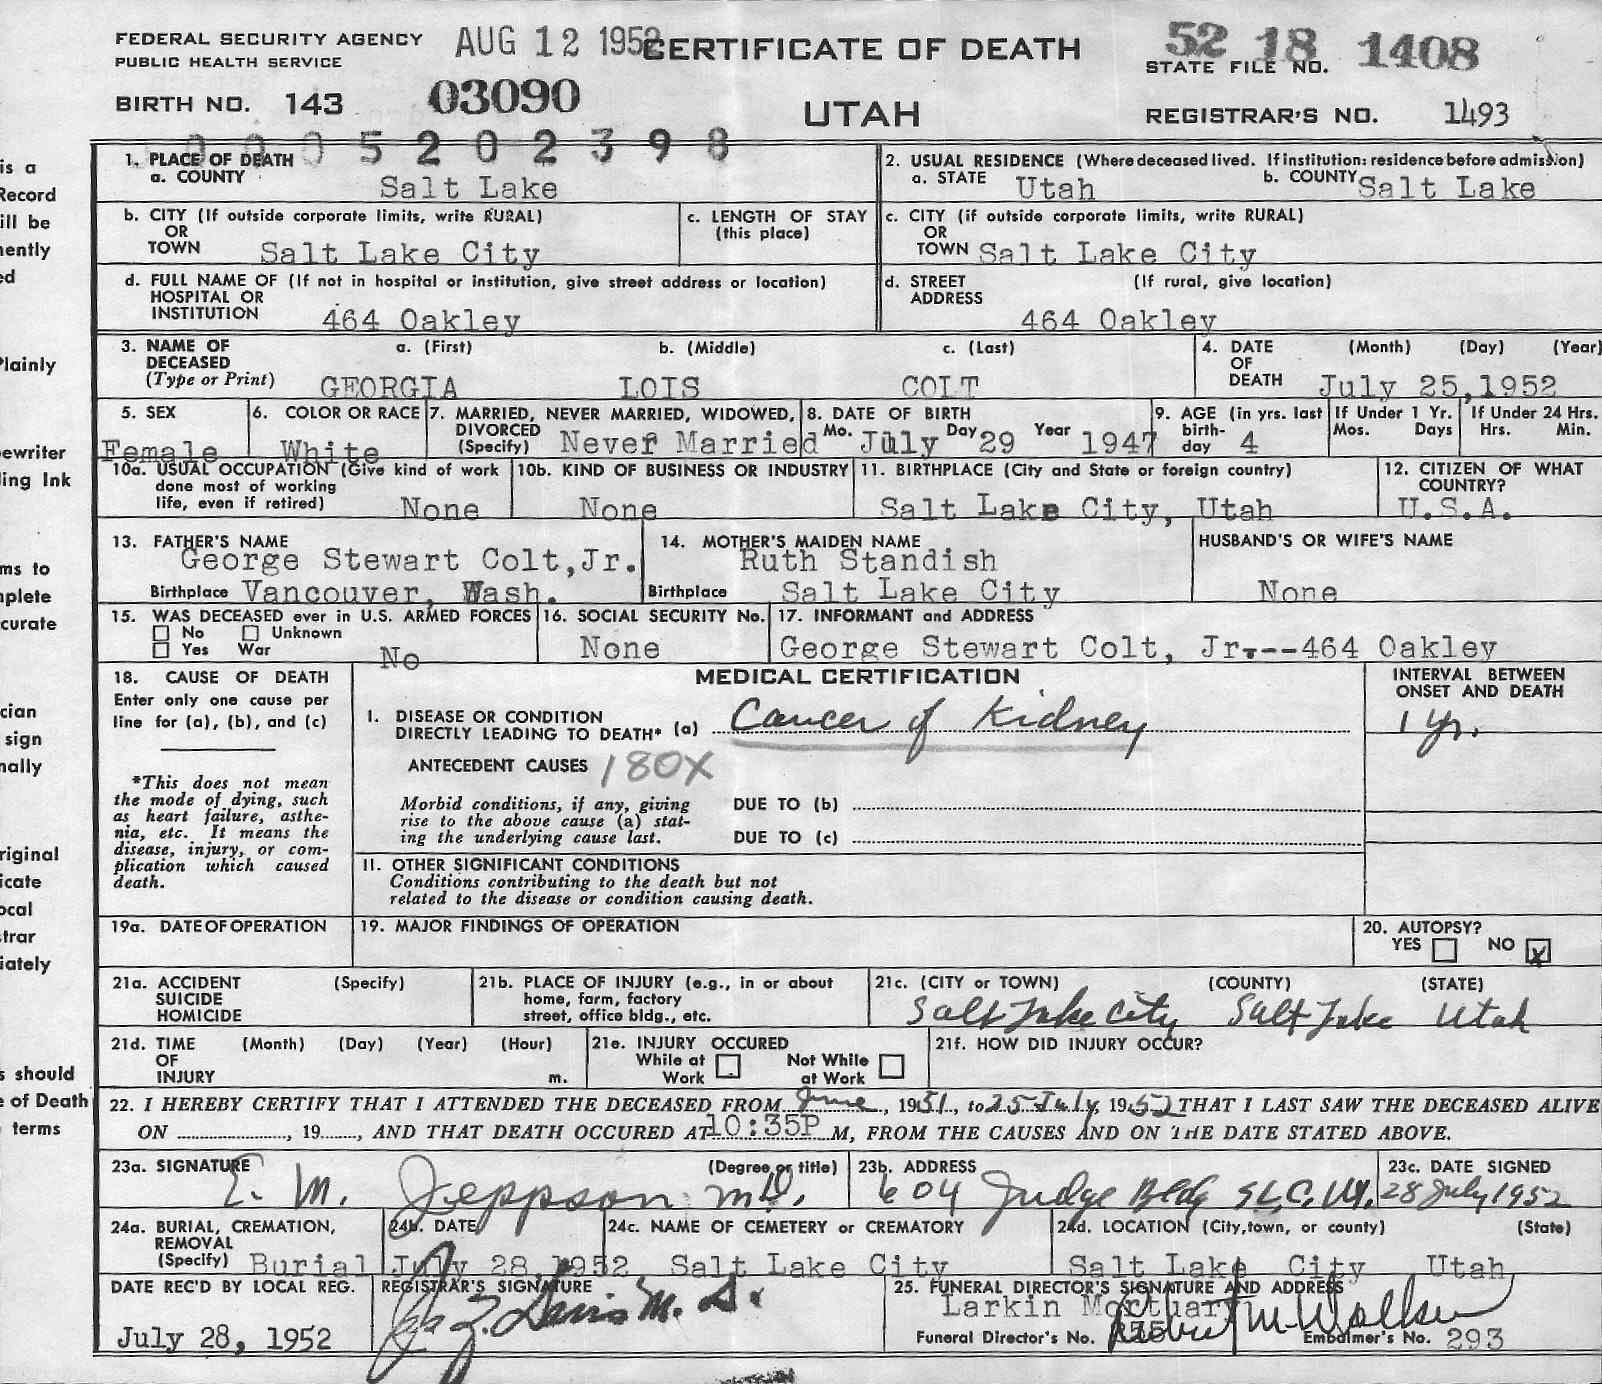 FEDERAL SECURITY AGENCY
PUBLIC HEALTH SERVICE
AUG 12 1952
CERTIFICATE OF DEATH
52 18 1408
STATE FILE NO.
BIRTH NO. 143 03090
UTAH
REGISTRAR'S NO. 1493
0 0 0 5 2 0 2 3 9 8
1. PLACE OF DEATH
a. COUNTY
Salt Lake
2. USUAL RESIDENCE (Where deceased lived. If institution: residence before admission)
a. STATE Utah b. COUNTY Salt Lake
b. CITY (If outside corporate limits, write RURAL)
OR
TOWN Salt Lake City
c. LENGTH OF STAY
(this place)
c. CITY (if outside corporate limits, write RURAL)
OR
TOWN Salt Lake City
d. FULL NAME OF (If not in hospital or institution, give street address or location)
HOSPITAL OR
INSTITUTION 464 Oakley
d. STREET (If rural, give location)
ADDRESS
464 Oakley
3. NAME OF a. (First) b. (Middle) c. (Last)
DECEASED
(Type or Print) GEORGIA LOIS COLT
4. DATE (Month) (Day) (Year)
OF
DEATH July 25,1952
5. SEX
Female
6. COLOR OR RACE
White
7. MARRIED, NEVER MARRIED, WIDOWED,
DIVORCED
(Specify) Never Married
8. DATE OF BIRTH
Mo. July Day 29 Year 1947
9. AGE (in yrs. last
birth-
day 4
If Under 1 Yr.
Mos. Days
If Under 24 Hrs.
Hrs. Min.
10a. USUAL OCCUPATION (Give kind of work
done most of working
life, even if retired) None
10b. KIND OF BUSINESS OR INDUSTRY
None
11. BIRTHPLACE (City and State or foreign country)
Salt Lake City, Utah
12. CITIZEN OF WHAT
COUNTRY?
U.S.A.
13. FATHER'S NAME
George Stewart Colt,Jr.
Birthplace Vancouver, Wash.
14. MOTHER'S MAIDEN NAME
Ruth Standish
Birthplace Salt Lake City
HUSBAND'S OR WIFE'S NAME
None
15. WAS DECEASED ever in U.S. ARMED FORCES
No Unknown
Yes War No
16. SOCIAL SECURITY No.
None
17. INFORMANT and ADDRESS
George Stewart Colt, Jr.--464 Oakley
18. CAUSE OF DEATH
Enter only one cause per
line for (a), (b), and (c)
*This does not mean
the mode of dying, such
as heart failure, asthe-
nia, etc. It means the
disease, injury, or com-
plication which caused
death.
MEDICAL CERTIFICATION
INTERVAL BETWEEN
ONSET AND DEATH
I. DISEASE OR CONDITION
DIRECTLY LEADING TO DEATH* (a) Cancer of Kidney 1 yr.
ANTECEDENT CAUSES 180X
Morbid conditions, if any, giving
rise to the above cause (a) stat-
ing the underlying cause last.
DUE TO (b)
DUE TO (c)
II. OTHER SIGNIFICANT CONDITIONS
Conditions contributing to the death but not
related to the disease or condition causing death.
19a. DATE OF OPERATION
19. MAJOR FINDINGS OF OPERATION
20. AUTOPSY?
YES NO X
21a. ACCIDENT (Specify)
SUICIDE
HOMICIDE
21b. PLACE OF INJURY (e.g., in or about
home, farm, factory
street, office bldg., etc.
21c. (CITY or TOWN) (COUNTY) (STATE)
Salt Lake City Salt Lake Utah
21d. TIME (Month) (Day) (Year) (Hour)
OF
INJURY m.
21e. INJURY OCCURED
While at Not While
Work at Work
21f. HOW DID INJURY OCCUR?
22. I HEREBY CERTIFY THAT I ATTENDED THE DECEASED FROM June, 1951, to 25 July, 1952 THAT I LAST SAW THE DECEASED ALIVE
ON ............, 19......, AND THAT DEATH OCCURED AT 10:35P M, FROM THE CAUSES AND ON THE DATE STATED ABOVE.
23a. SIGNATURE (Degree or title)
E. M. Jeppson M.D.
23b. ADDRESS
604 Judge Bldg S.L.C. Ut.
23c. DATE SIGNED
28 July 1952
24a. BURIAL, CREMATION,
REMOVAL
(Specify) Burial
24b. DATE
July 28, 1952
24c. NAME OF CEMETERY or CREMATORY
Salt Lake City
24d. LOCATION (City, town, or county) (State)
Salt Lake City Utah
DATE REC'D BY LOCAL REG.
July 28, 1952
REGISTRAR'S SIGNATURE
Davis M. D.
25. FUNERAL DIRECTOR'S SIGNATURE AND ADDRESS
Larkin Mortuary
Robert M Walker
Funeral Director's No. Embalmer's No. 293
is a
Record
ill be
nently
ed
Plainly
ewriter
ling Ink
ms to
mplete
curate
cian
sign
nally
riginal
icate
ocal
strar
iately
s should
e of Death
terms